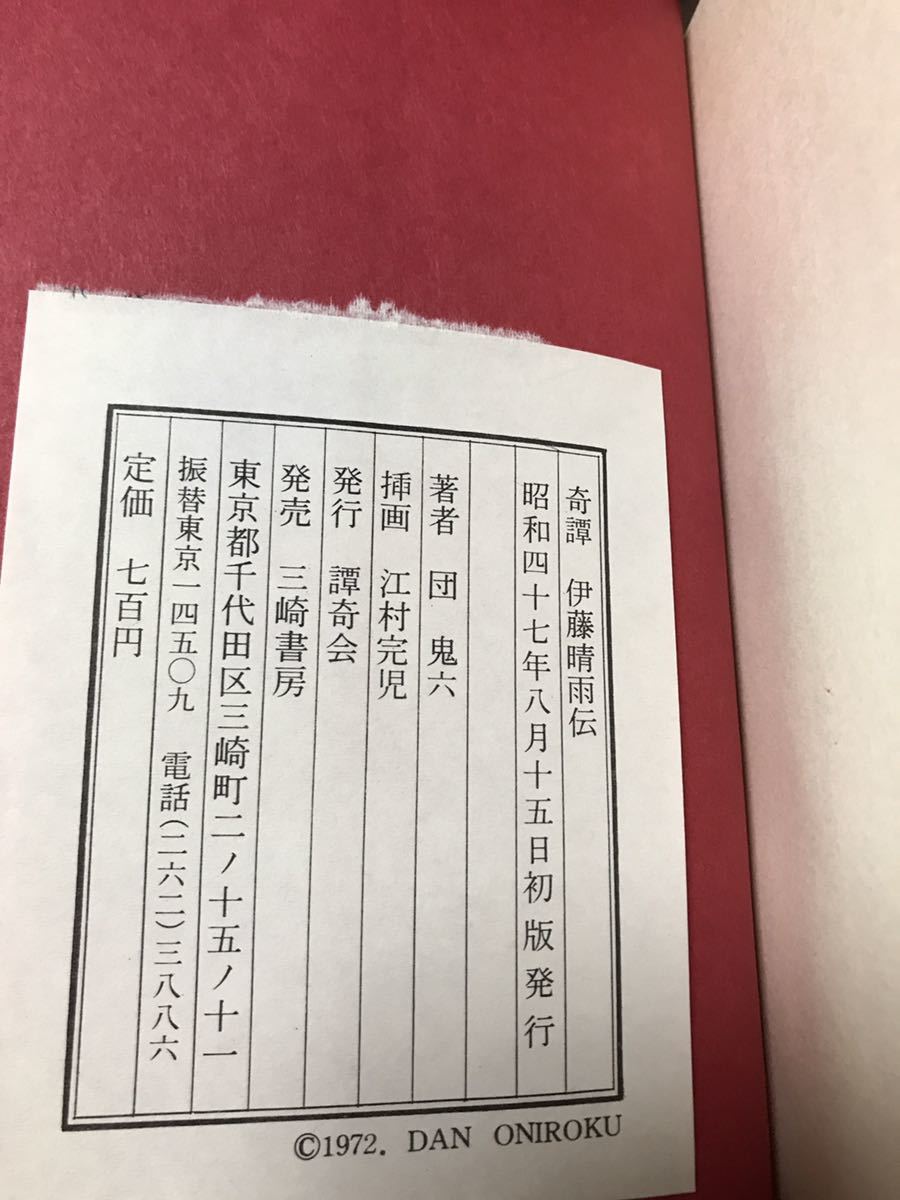 奇譚 伊藤晴雨伝
昭和四十七年八月十五日初版発行
著者 団 鬼六
挿画 江村完児
発行 譚奇会
発売 三崎書房
東京都千代田区三崎町二ノ十五ノ十一
振替東京一四五〇九 電話(二六二)三八八六
定価 七百円
©1972. DAN ONIROKU